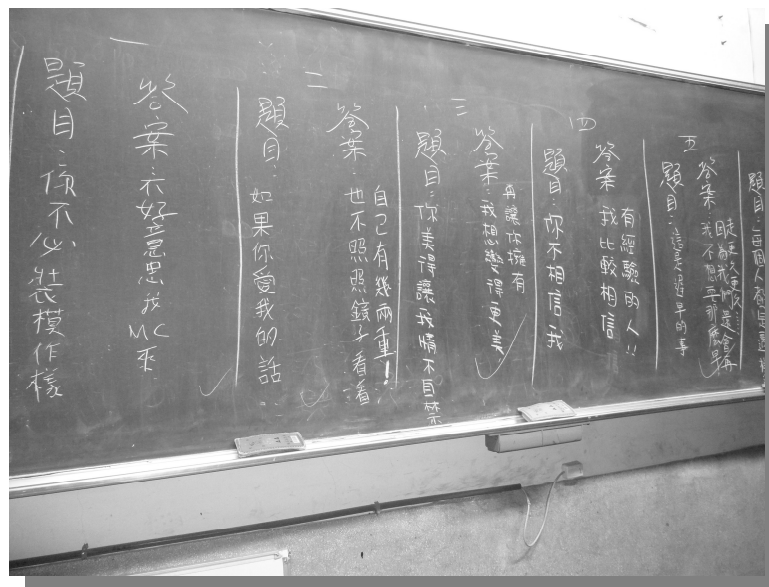 一
題目:你不必裝模作樣
答案:不好意思我MC來
二
題目:如果你愛我的話...
答案:也不照照鏡子看看
自己有幾兩重!
三
題目:你美得讓我情不自禁
答案:我想變得更美
再讓你擁有
四
題目:你不相信我
答案 我比較相信
有經驗的人!!
五
題目:這是遲早的事
答案:我不想要那麼早
因為我們是會再
走更久更久...
題目:每個人都是